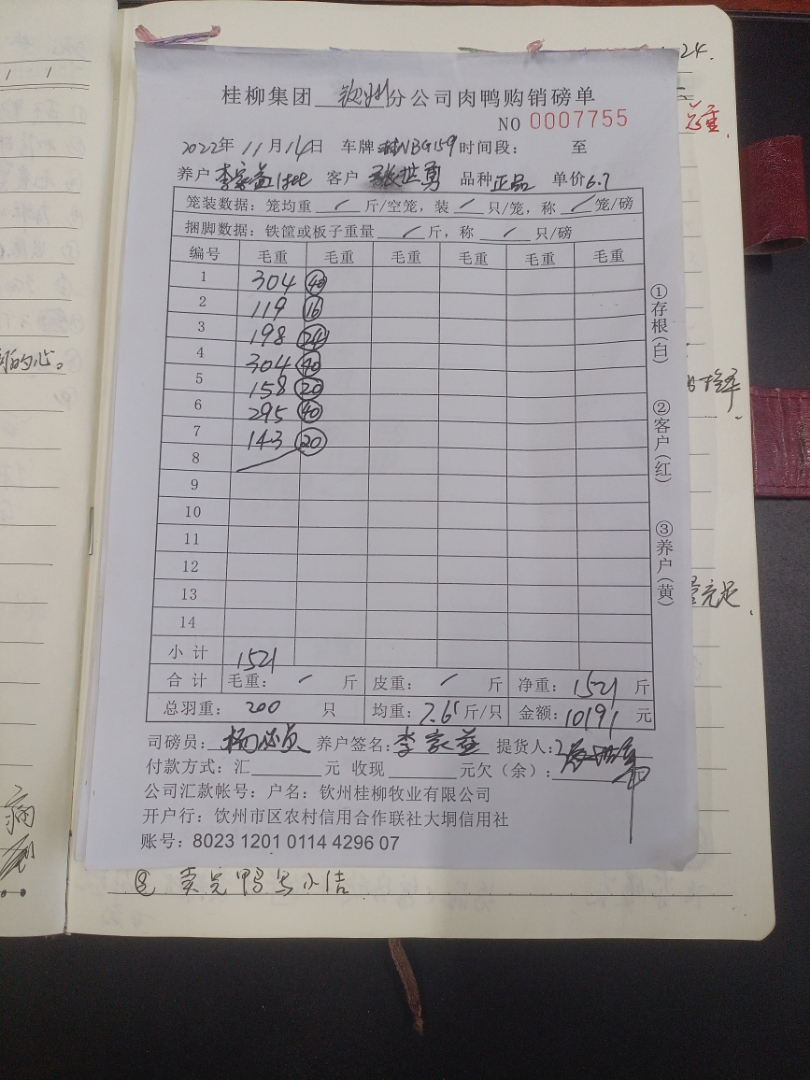 桂柳集团 钦州 分公司肉鸭购销磅单
NO 0007755
2022年 11月 14日 车牌 桂NBG159 时间段: 至
养户 李家益 客户 张世勇 品种 正品 单价 6.7
笼装数据:笼均重 / 斤/空笼,装 / 只/笼,称 / 笼/磅
捆脚数据:铁筐或板子重量 / 斤,称 / 只/磅
编号 毛重 毛重 毛重 毛重 毛重 毛重
1 304 40
2 119 16
3 198 24
4 304 40
5 158 20
6 295 40
7 143 20
8
9
10
11
12
13
14
小计 1521
合计 毛重: / 斤 皮重: / 斤 净重: 1521 斤
总羽重: 200 只 均重: 7.6 斤/只 金额: 10191 元
司磅员: 养户签名: 李家益 提货人:
付款方式:汇 元 收现 元欠(余):
公司汇款帐号:户名:钦州桂柳牧业有限公司
开户行:钦州市区农村信用合作联社大垌信用社
账号:8023 1201 0114 4296 07
①存根(白)
②客户(红)
③养户(黄)
24.
的心。
充足.
病
⑧ 卖完鸭写小结